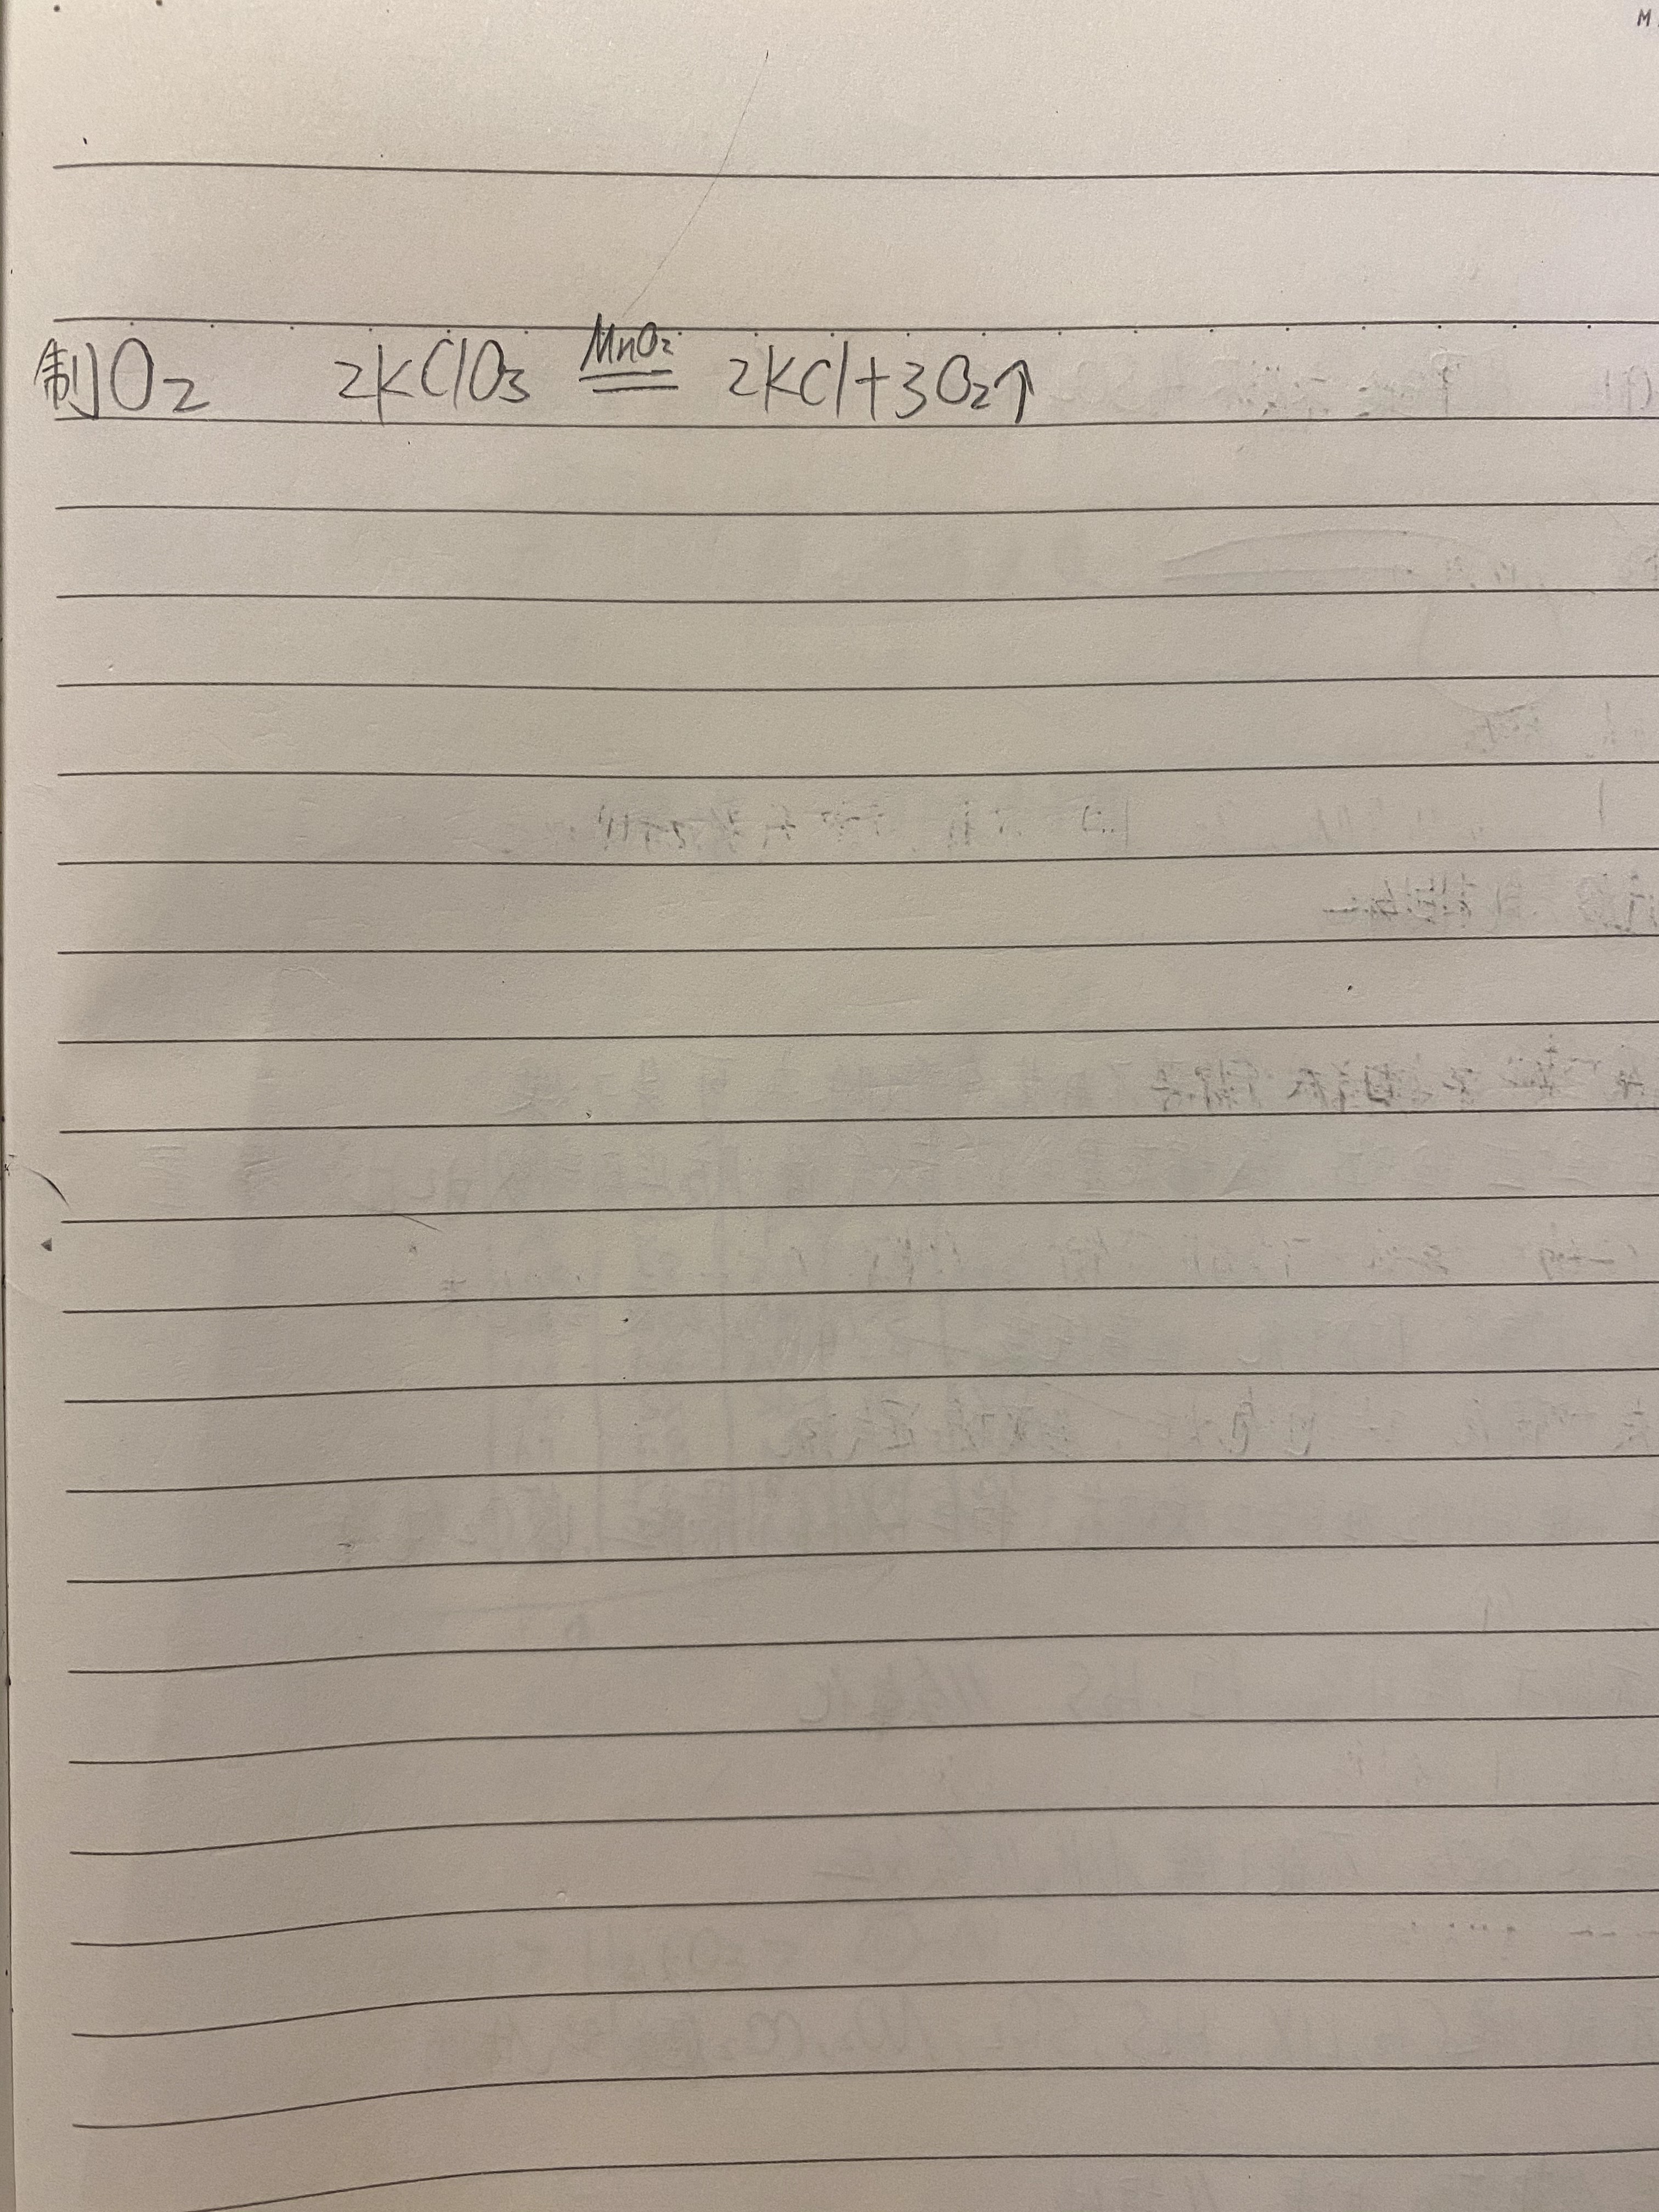 制O₂ 2KClO₃ MnO₂ ══ 2KCl+3O₂↑